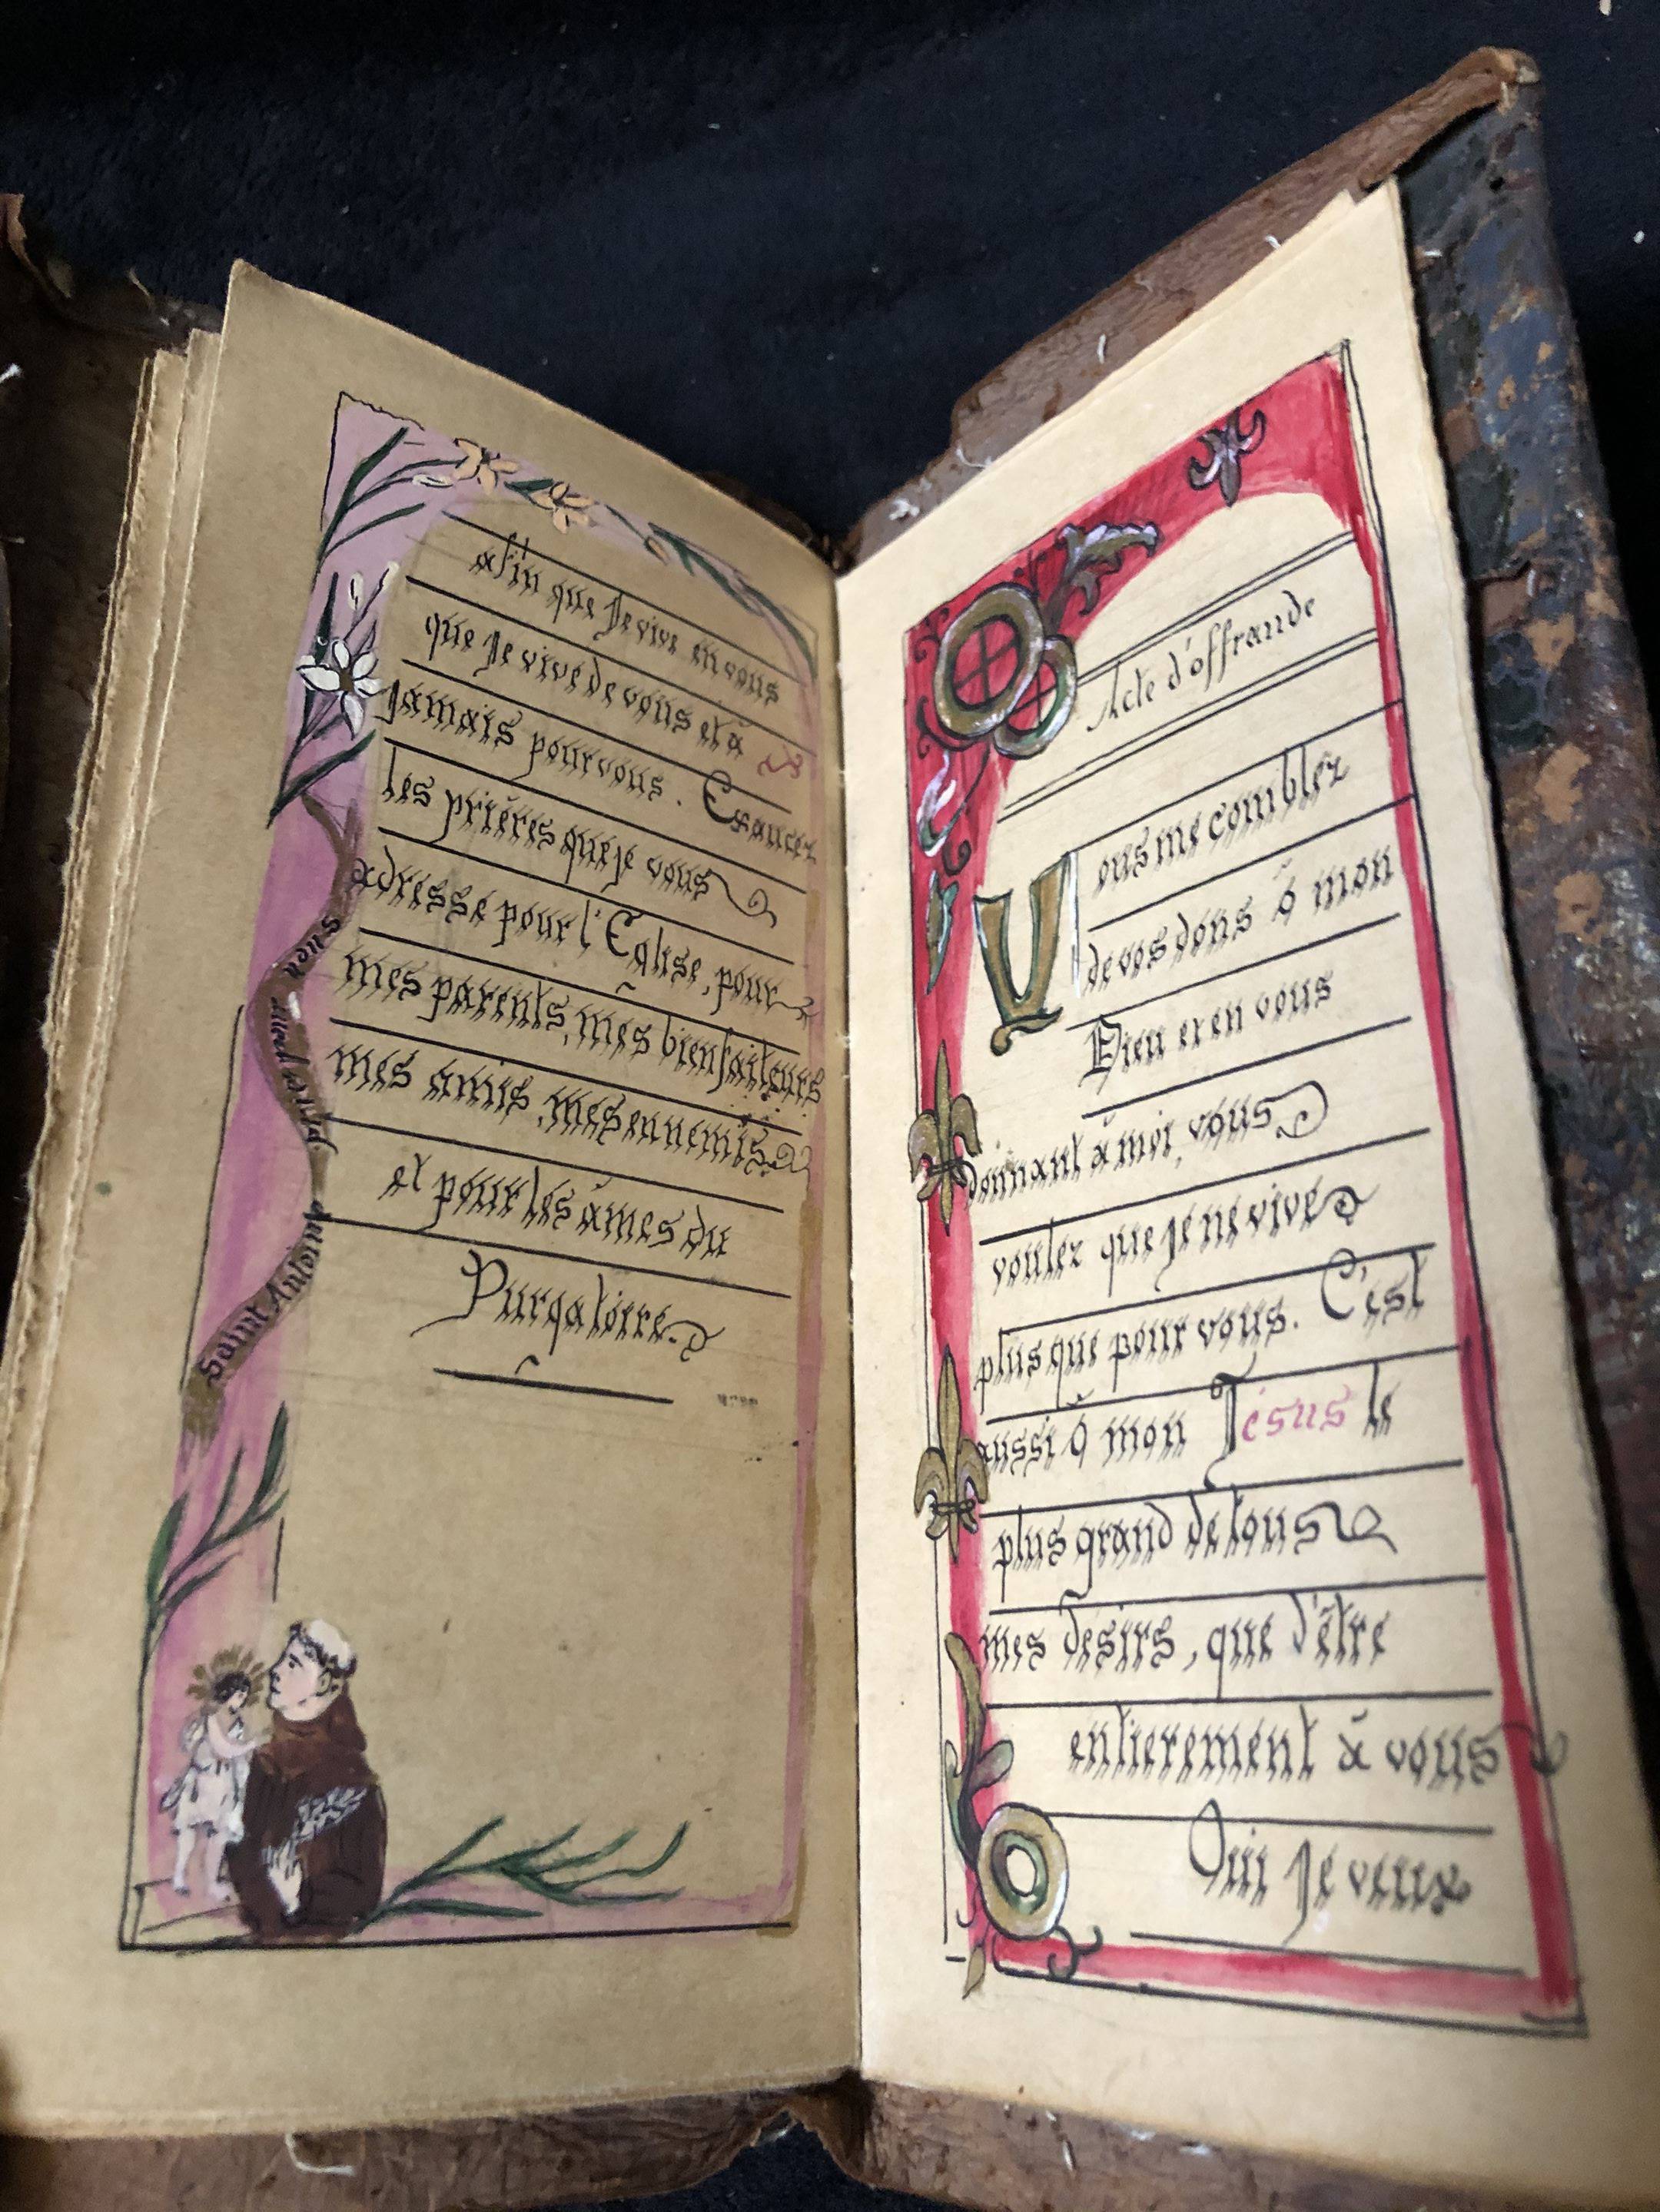 afin que Je vive en vous
que Je vive de vous et à
Jamais pour vous. Exaucez
les prières que je vous
adresse pour l'Eglise, pour
mes parents, mes bienfaiteurs
mes amis, mes ennemis
et pour les âmes du
Purgatoire.
Saint Antoine
Acte d'offrande
Vous me comblez
de vos dons ô mon
Dieu et en vous
donnant à moi, vous
voulez que Je ne vive
plus que pour vous. C'est
aussi ô mon Jésus le
plus grand de tous
mes désirs, que d'être
entierement à vous
Oui Je veux